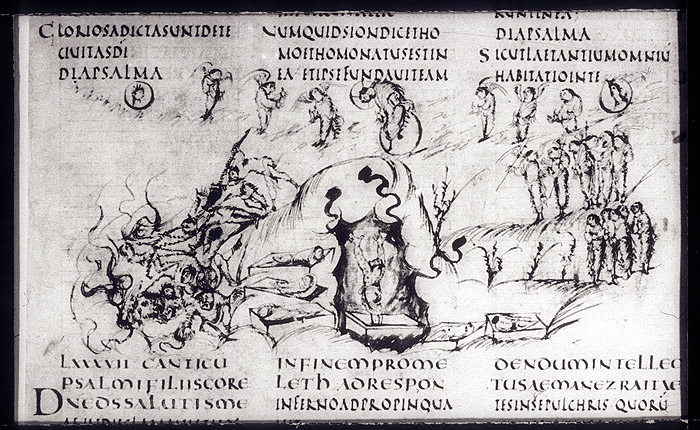 GLORIOSADICTASUNTDETE
CIUITASDI
DIAPSALMA
NUMQUIDSIONDICETHO
MOETHOMONATUSESTIN
EA ETIPSEFUNDAUITEAM
RUNTINEA
DIAPSALMA
SICUTLAETANTIUMOMNIŪ
HABITATIOINTE
LXXXVII CANTICU
PSALMIFILIISCORE
DNEDSSALUTISME
INFINEMPROME
LETHADRESPON
INFERNOADPROPINQUA
DENDUMINTELLEC
TUSAEMANEZRAITAE
TESINSEPULCHRIS QUORŪ